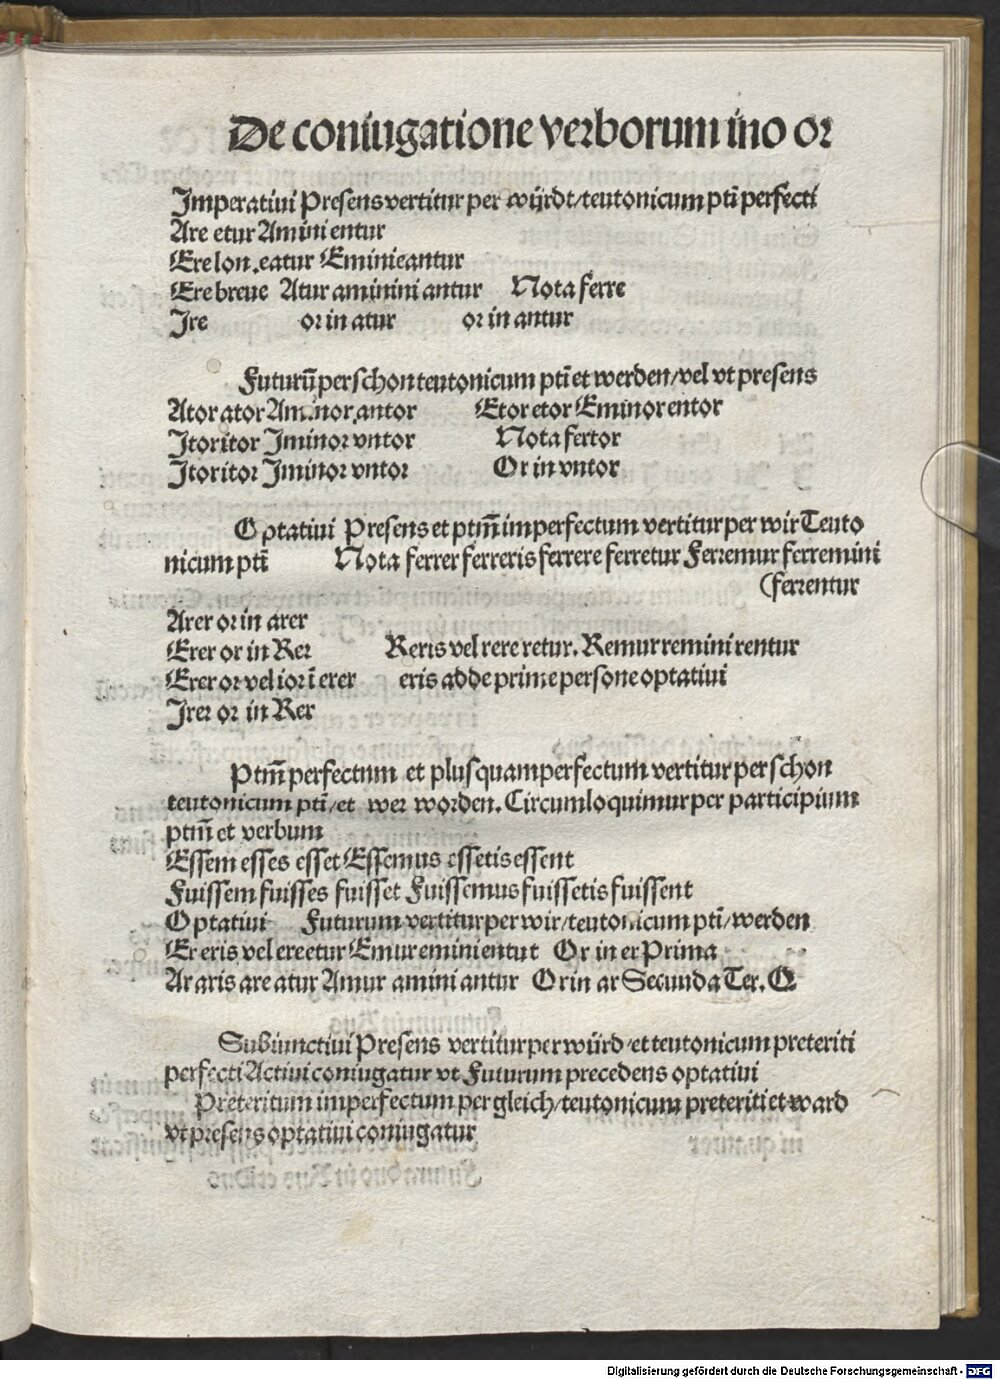 De coniugatione verborum ino or
Imperatiui Presens vertitur per würdt/teutonicum pti perfecti
Are etur Amini entur
Ere lon. eatur Eminieantur
Ere breue Atur aminini antur Nota ferre
Ire or in atur or in antur
Futurū per schon teutonicum pti et werden/vel vt presens
Ator ator Aminor antor Etor etor Eminor entor
Itor itor Iminor vntor Nota fertor
Itor itor Iminor vntor Or in vntor
Optatiui Presens et ptm̄ imperfectum vertitur per wir Teuto
nicum pti Nota ferrer ferreris ferrere ferretur Ferremur ferremini
(ferrentur
Arer or in arer
Erer or in Rer Reris vel rere retur. Remur remini rentur
Erer or vel ior ī erer eris adde prime persone optatiui
Irer or in Rer
Ptm̄ perfectum et plusquamperfectum vertitur per schon
teutonicum pti/et wer worden. Circumloquimur per participium
ptm̄ et verbum
Essem esses esset Essemus essetis essent
Fuissem fuisses fuisset Fuissemus fuissetis fuissent
Optatiui Futurum vertitur per wir/teutonicum pti/werden
Er eris vel ere etur Emur emini entut Or in er Prima
Ar aris are atur Amur amini antur Or in ar Secunda Ter. Q
Subiunctiui Presens vertitur per würd/et teutonicum preteriti
perfecti Actiui coniugatur vt Futurum precedens optatiui
Preteritum imperfectum per gleich/teutonicum preteriti et ward
vt presens optatiui coniugatur
Digitalisierung gefördert durch die Deutsche Forschungsgemeinschaft - DFG